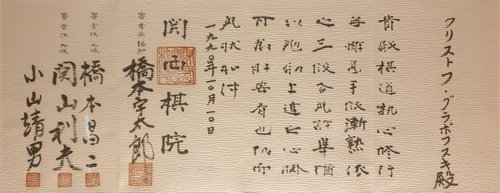 クリストフ・グラボフスキ殿
貴殿棋道執心修行
無懈怠手段漸熟依
之三段令免許畢猶
以勉励上達之心掛
可為肝要者也仍而
免状如件
一九九〇年一〇月一〇日
関西棋院
橋本宇太郎
審査役 九段
橋本昌二
審査役 九段
関山利夫
小山靖男